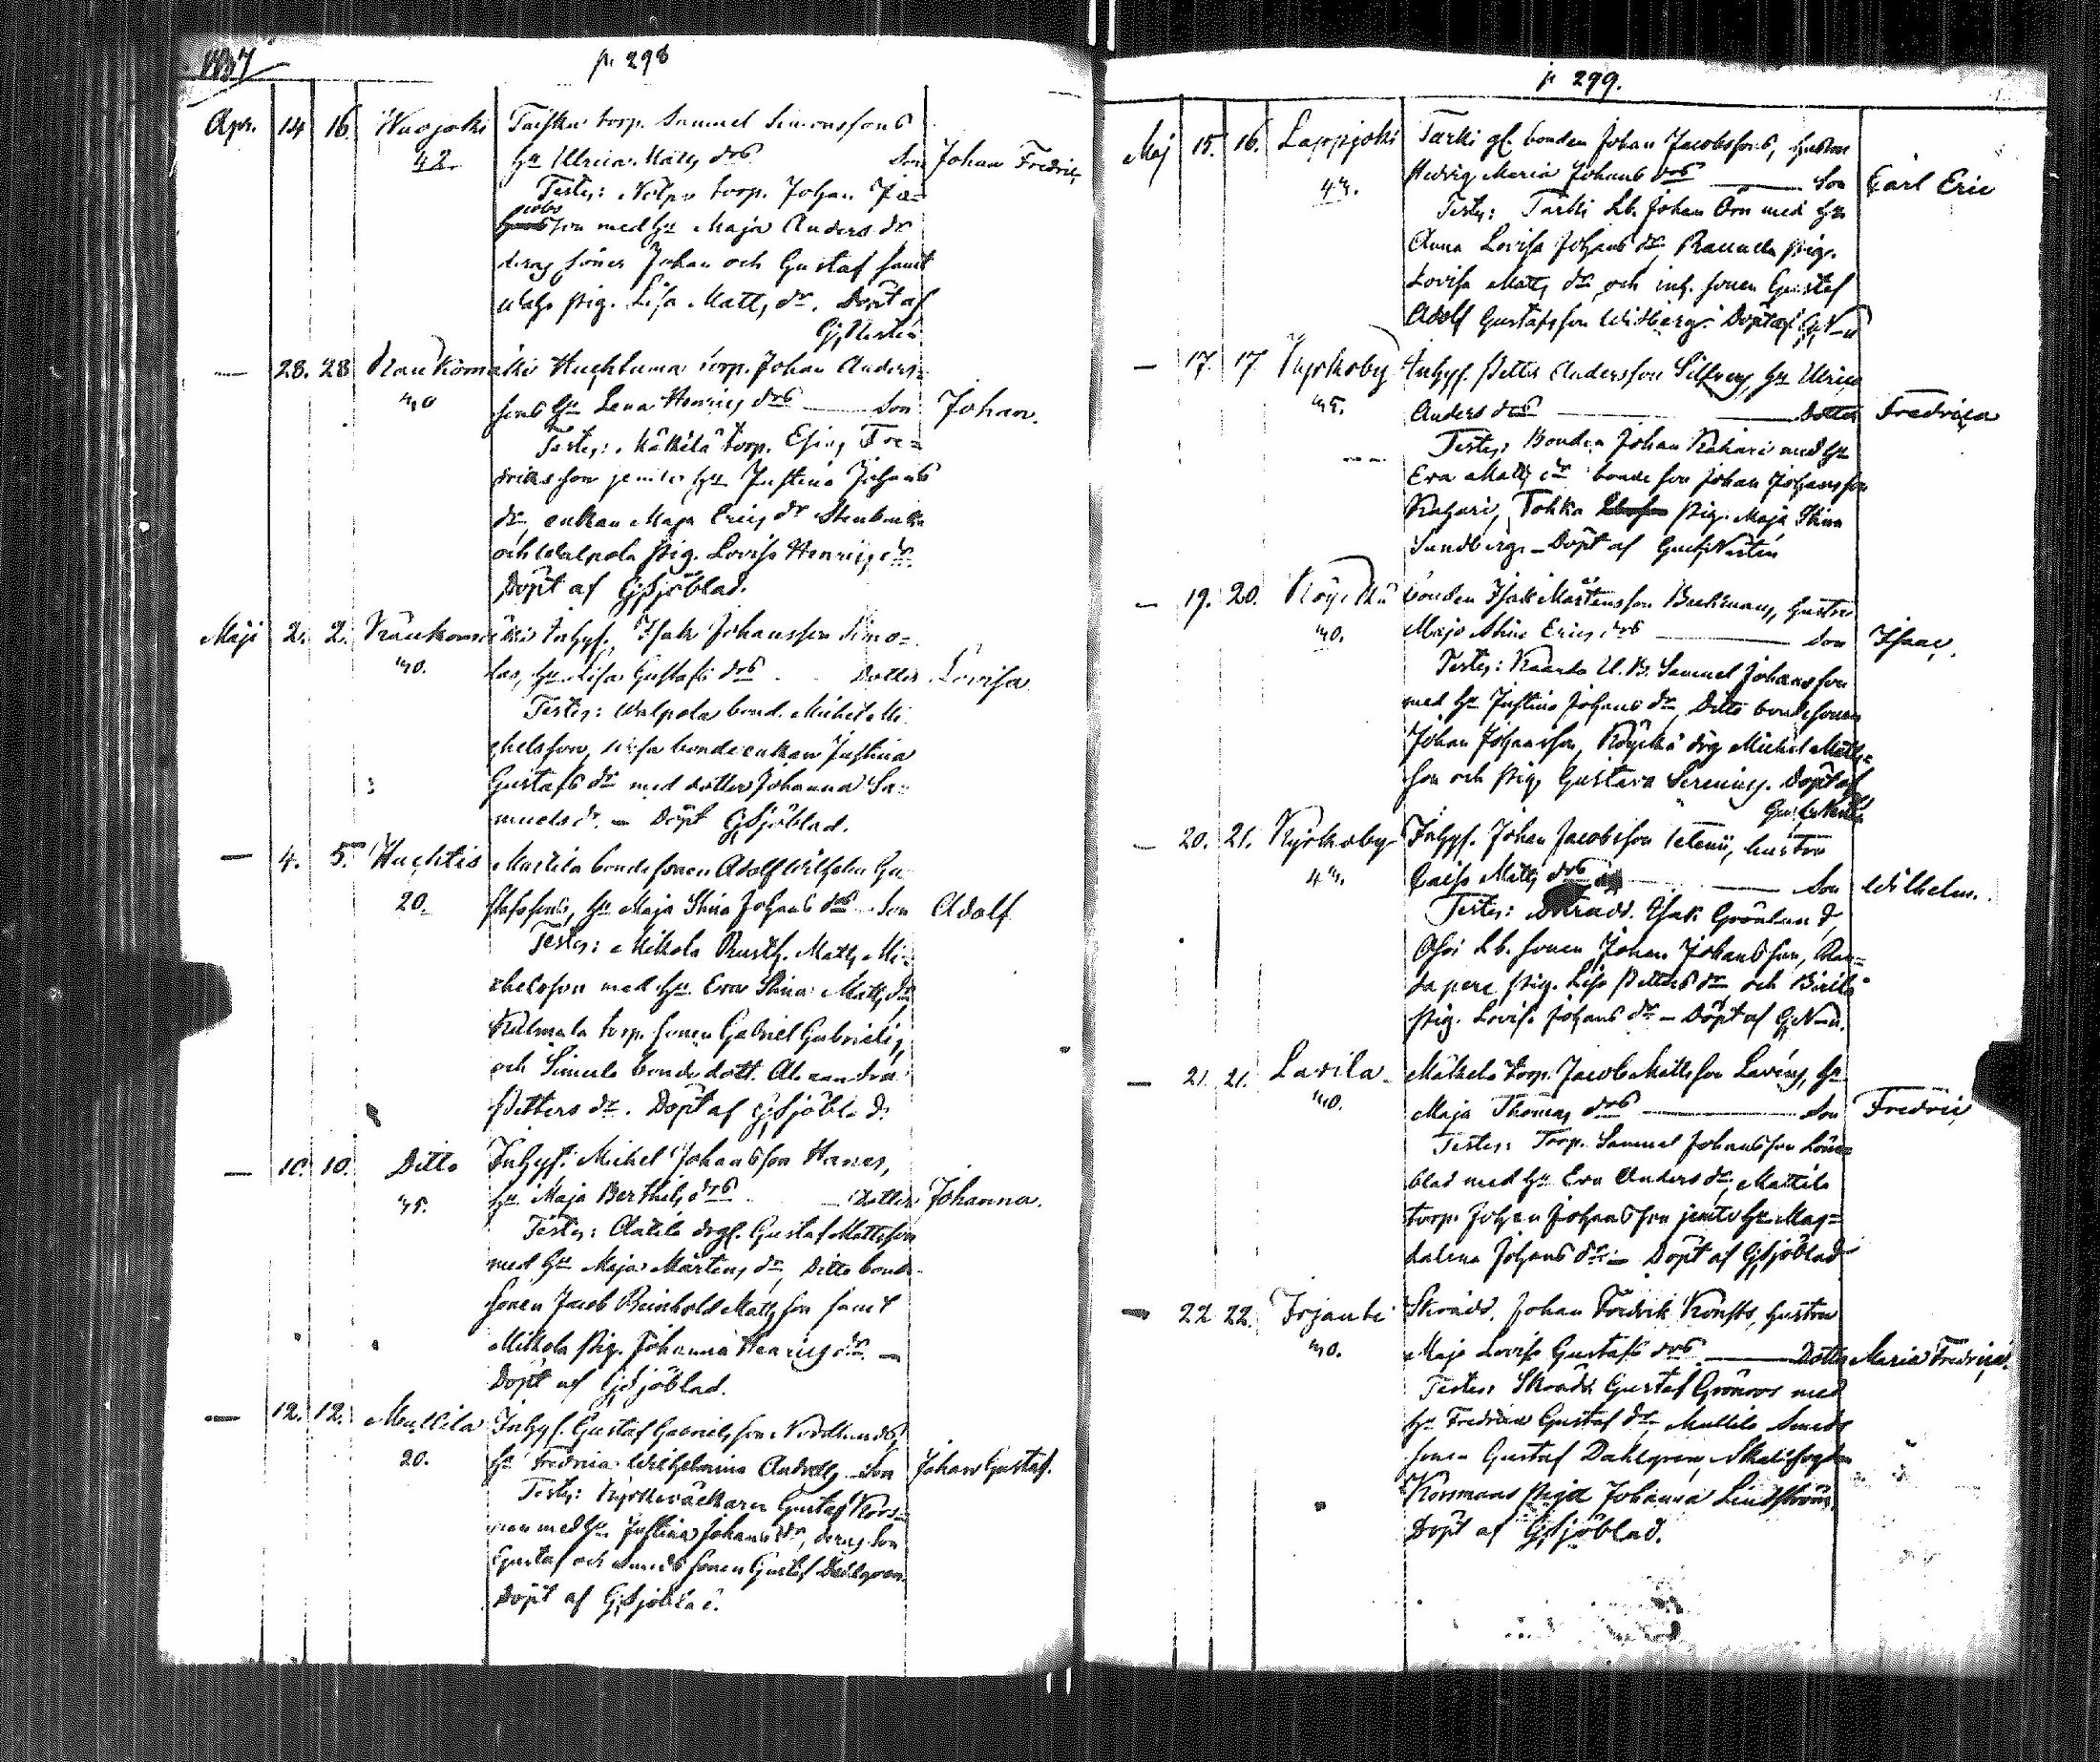 1837
p. 298
Apr. 14 16. Wuojoki Taipka torp. Samuel Simonssons
42 hu Ulrica Matts drs Son Johan Fredric
Testes: Nolpo torp. Johan Ja=
cobs son med hu Maja Anders dr
deras söner Johan och Gustaf samt
pig. Lisa Matts dr. Döpt af
G. Nestén
— 28. 28 Raukomäki Huhtuma torp. Johan Anders=
40 sons hu Lena Henrics drs — Son Johan.
Testes: Käkilä torp. Esaias Fre=
driksson jemte hu Justina Johans
dr, enkan Maja Erics dr Stenbacka
och Walpola pig. Lovisa Henrics dr.
Döpt af G. Sjöblad.
Maji 2. 2. Raukomäki Inhys. Isak Johansson Simo=
40. las, hu Lisa Gustafs drs Dotter Lovisa
Testes: Walpola bond. Michel Mi
chelsson, bonde enkan Justina
Gustafs dr med dotter Johanna Sa=
muels dr. — Döpt G Sjöblad.
— 4. 5. Huchtis Mattila bondesonen Adolf Wilhelm Gu
20. stafssons, hu Maja Stina Johans drs Son Adolf
Testes: Mikola Rusth. Matts Mi=
chelsson med hu Eva Stina Matts dr
Kulmala torp. sonen Gabriel Gabrielss,
och Simula bonde dott. Alexandra
Petters dr. Döpt af G Sjöblad.
— 10. 10. Ditto Inhys. Michel Johansson Hanes,
45. hu Maja Berthils drs — Dotter Johanna.
Testes: Anttila drgs. Gustaf Mattsson
med hu Maja Mårtens dr, Ditto bonde
sonen Jacob Reinhold Mattsson samt
Mikola pig. Johanna Henrics dr. —
Döpt af G Sjöblad.
— 12. 12. Mullila Inhys. Gustaf Gabrielsson Nordlunds,
20. hu Fredrica Wilhelmina Andrell Son Johan Gustaf.
Testes: Kyrkoväckaren Gustaf Kors=
man med hu Justina Johans dr, deras son
Gustaf och smeds sonen Gustaf Dahlgren.
Döpt af G Sjöblad.
p 299.
Maj 15. 16. Lappjoki Tarki gl. bonden Johan Jacobssons, hustru
Hedvig Maria Johans drs — Son Carl Eric
Testes: Tarki Lb. Johan Örn med hu
Anna Lovisa Johans dr, Raunela pig.
Lovisa Matts dr och inh. sonen Gustaf
Adolf Gustafsson Widberg. Döpt af G N—n
— 17. 17 Kyrkoby Inhys. Petter Andersson Silfvers, hu Ulrica
45. Anders drs — Dotter Fredrica
Testes: Bonden Johan Kahari med hu
Eva Matts dr bonde son Johan Johansson
Kahari, Tokka pig. Maja Stina
Sundberg — Döpt af Gust. Nestén
— 19. 20. Köyckä bonden Isak Mårtensson Backmans, hustru
40. Maja Stina Erics drs — Son Isaac.
Testes: Kaarto U. B. Samuel Johansson
med hu Justina Johans dr, Ditto bondesonen
Johan Johansson, Köyckä drg Michel Matts=
son och pig. Gustava Serenius. Döpt af
Gust. Nestén
— 20. 21. Kyrkoby Inhys. Johan Jacobsson hustru
Caisa Matts drs — Son Wilhelm.
Testes: Skrädd. Isak Grönlund,
Lb. sonen Johan Johansson,
pig. Lisa Petters dr och
pig. Lovisa Johans dr — Döpt af G. N—n.
— 21. 21. Lavila Mäkelä torp. Jacob Mattsson Lavins, hu
40. Maja Thomas drs — Son Fredric
Testes: Torp. Samuel Johansson Löne=
blad med hu Eva Anders dr, Mattila
torp. Johan Johansson jemte hu Mag=
dalena Johans dr — Döpt af G Sjöblad
— 22 22. Irjanti Skrädd. Johan Fredrik hustru
40. Maja Lovisa Gustafs drs — Dotter Maria Fredrica.
Testes: Skrädd. Gustaf Grönroos med
hu Fredrica Gustaf dr, Mullila Smeds
sonen Gustaf Dahlgren,
Korsmans piga Johanna Lindström.
Döpt af G Sjöblad.